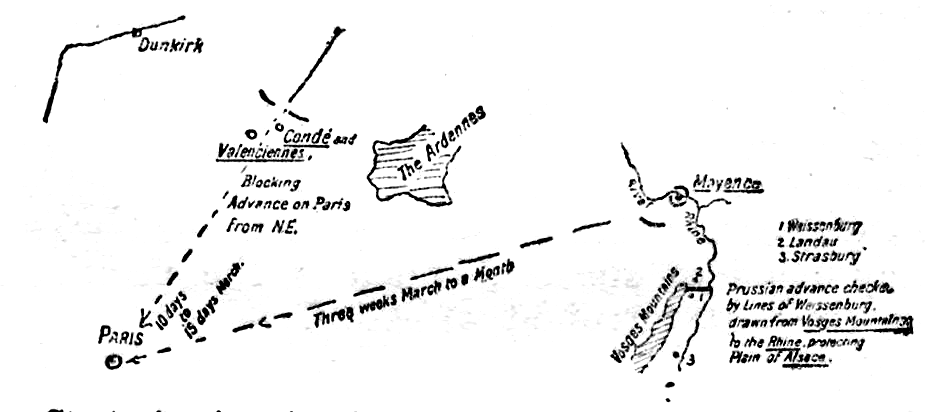 Dunkirk
Condé and
Valenciennes.
Blocking
Advance on Paris
From N.E.
The Ardennes
River
Rhine
Mayence
1 Weissenburg
2 Landau
3. Strasburg
Prussian advance checked
by Lines of Weissenburg,
drawn from Vosges Mountains
to the Rhine, protecting
Plain of Alsace.
Vosges Mountains
2
1
3
Three weeks March to a Month
10 days
to
15 days March.
PARIS